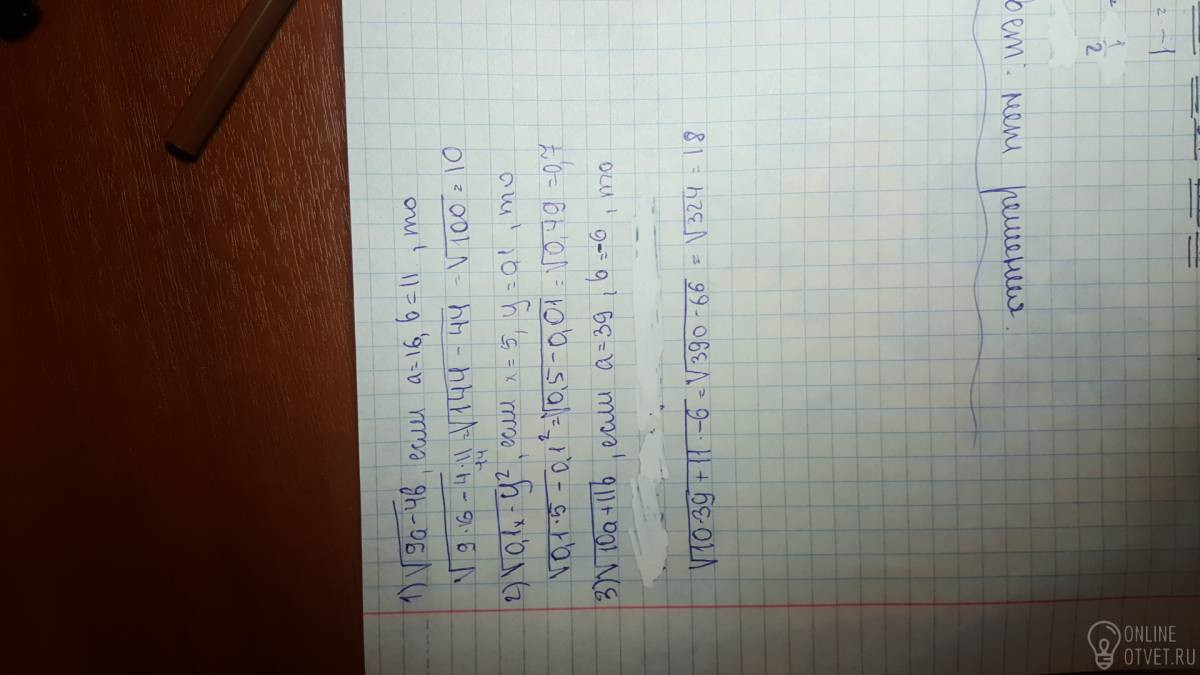 1) √9a-4b, если a=16, b=11, то
√9·16-4·11=√144-44=√100=10
44
2) √0,1x-y², если x=5, y=0,1, то
√0,1·5-0,1²=√0,5-0,01=√0,49=0,7
3) √10a+11b, если a=39, b=-6, то
√10·39+11·-6=√390-66=√324=18
вет: нет решения.
1
2
= -1
ONLINE
OTVET.RU